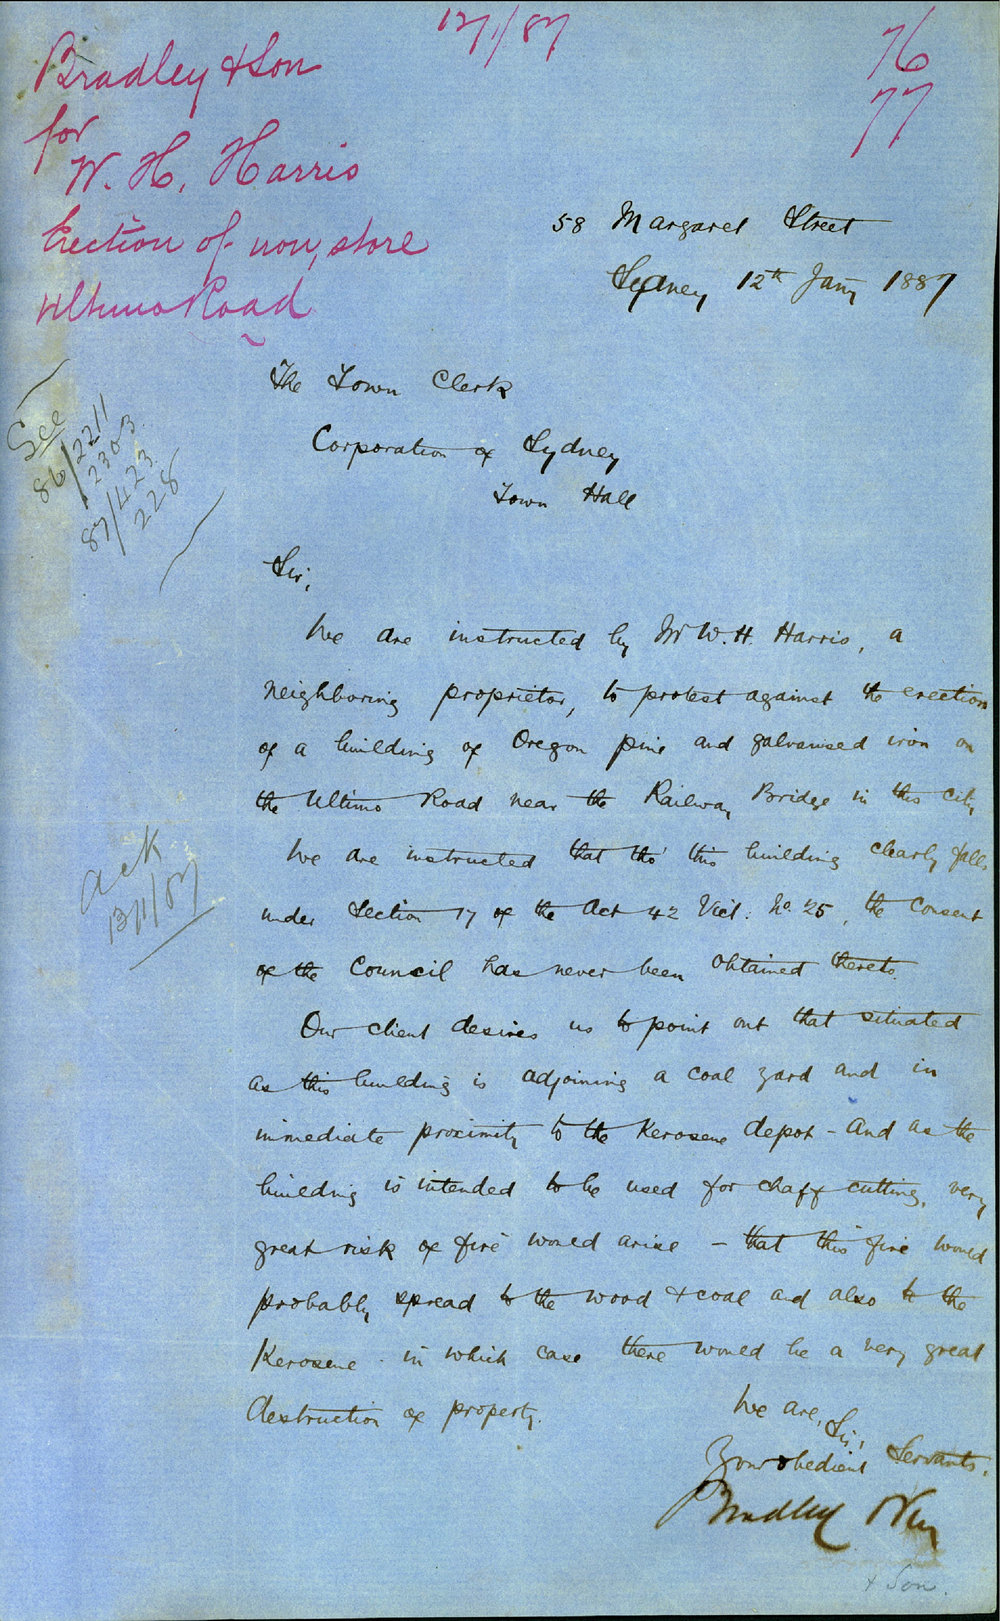 12/1/87
76
77
Bradley & Son
for
W. H. Harris
Erection of iron, store
Ultimo Road
58 Margaret Street
Sydney 12th Jany 1887
The Town Clerk
Corporation of Sydney
Town Hall
See
86/2211
" 2303
87/423
228
Sir,
We are instructed by Mr W. H. Harris, a
neighboring proprietor, to protest against the erection
of a building of Oregon pine and galvanised iron on
the Ultimo Road near the Railway Bridge in this city
We are instructed that tho' this building clearly falls
under Section 17 of the Act 42 Vict: No. 25, the consent
of the Council has never been obtained thereto.
Ack
13/1/87
Our client desires us to point out that situated
as this building is adjoining a coal yard and in
immediate proximity to the Kerosene depot - and as the
building is intended to be used for chaff cutting, very
great risk of fire would arise - that this fire would
probably spread to the wood & coal and also to the
Kerosene - in which case there would be a very great
destruction of property.
We are, Sir,
Your obedient Servants.
Bradley
& Son.